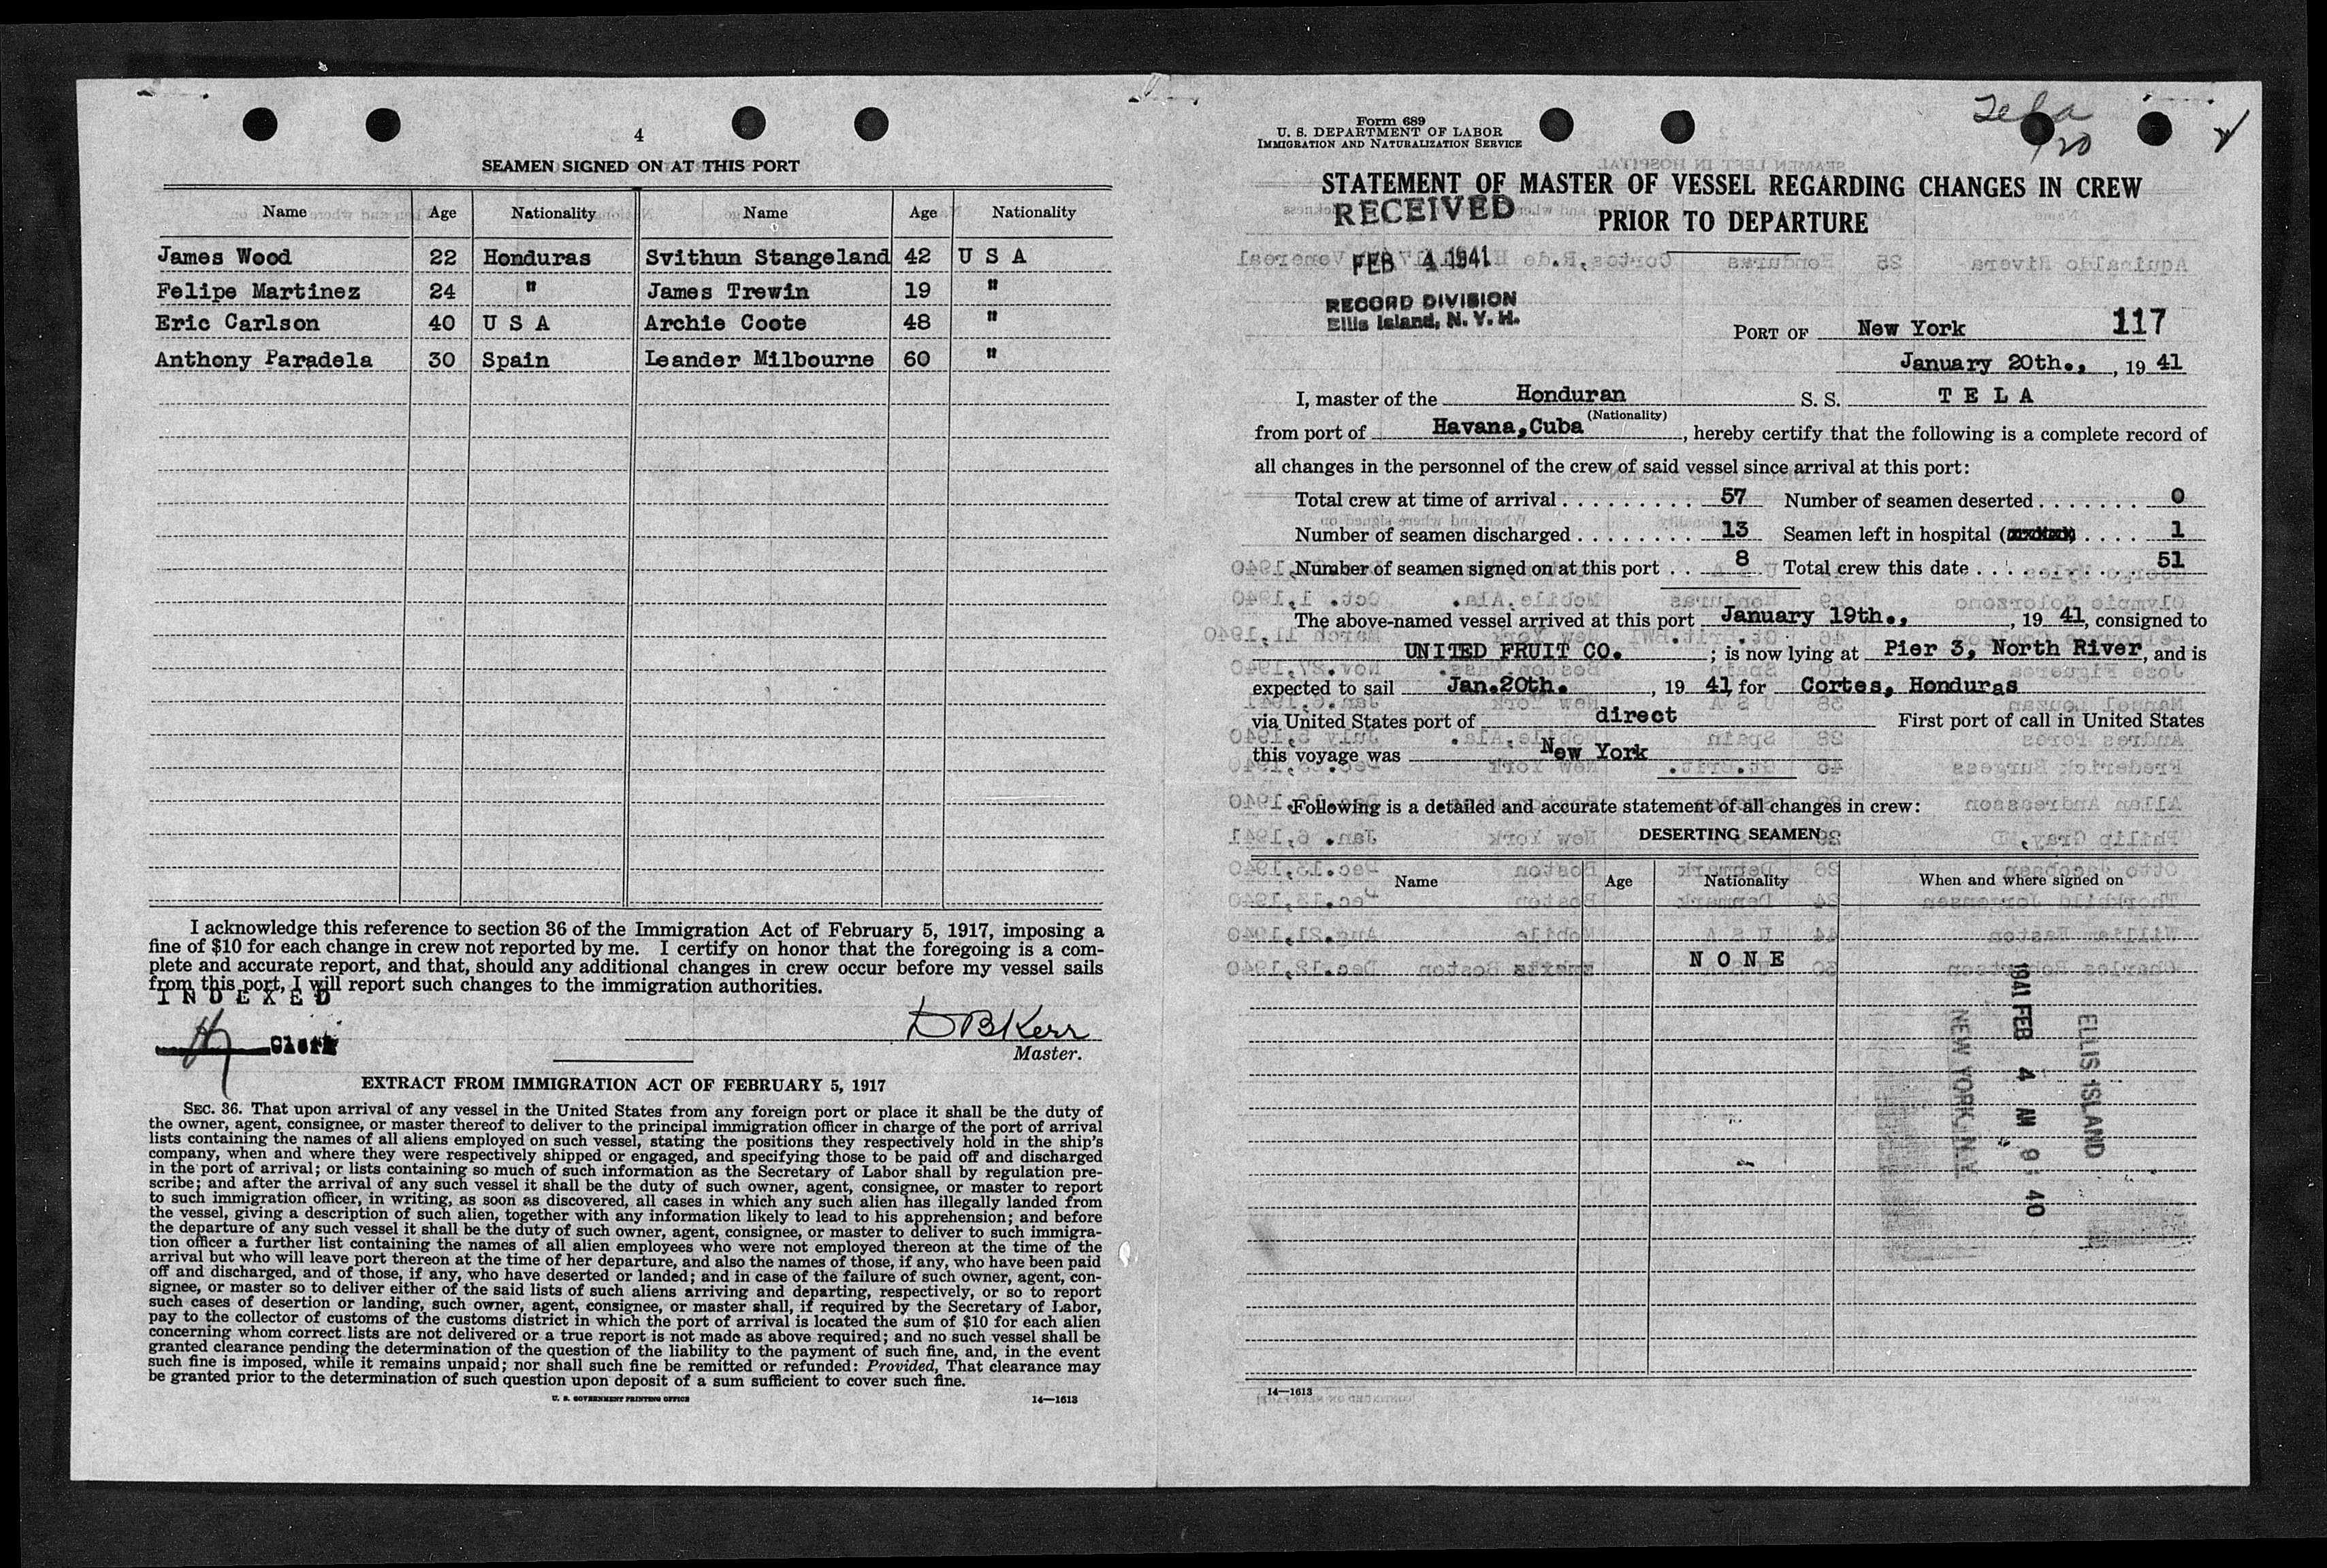 4
SEAMEN SIGNED ON AT THIS PORT
Name Age Nationality Name Age Nationality
James Wood 22 Honduras Svithun Stangeland 42 U S A
Felipe Martinez 24 " James Trewin 19 "
Eric Carlson 40 U S A Archie Coote 48 "
Anthony Paradela 30 Spain Leander Milbourne 60 "
I acknowledge this reference to section 36 of the Immigration Act of February 5, 1917, imposing a
fine of $10 for each change in crew not reported by me. I certify on honor that the foregoing is a com-
plete and accurate report, and that, should any additional changes in crew occur before my vessel sails
from this port, I will report such changes to the immigration authorities.
I N D E X E D
Clerk
D B Kerr
Master.
EXTRACT FROM IMMIGRATION ACT OF FEBRUARY 5, 1917
SEC. 36. That upon arrival of any vessel in the United States from any foreign port or place it shall be the duty of
the owner, agent, consignee, or master thereof to deliver to the principal immigration officer in charge of the port of arrival
lists containing the names of all aliens employed on such vessel, stating the positions they respectively hold in the ship's
company, when and where they were respectively shipped or engaged, and specifying those to be paid off and discharged
in the port of arrival; or lists containing so much of such information as the Secretary of Labor shall by regulation pre-
scribe; and after the arrival of any such vessel it shall be the duty of such owner, agent, consignee, or master to report
to such immigration officer, in writing, as soon as discovered, all cases in which any such alien has illegally landed from
the vessel, giving a description of such alien, together with any information likely to lead to his apprehension; and before
the departure of any such vessel it shall be the duty of such owner, agent, consignee, or master to deliver to such immigra-
tion officer a further list containing the names of all alien employees who were not employed thereon at the time of the
arrival but who will leave port thereon at the time of her departure, and also the names of those, if any, who have been paid
off and discharged, and of those, if any, who have deserted or landed; and in case of the failure of such owner, agent, con-
signee, or master so to deliver either of the said lists of such aliens arriving and departing, respectively, or so to report
such cases of desertion or landing, such owner, agent, consignee, or master shall, if required by the Secretary of Labor,
pay to the collector of customs of the customs district in which the port of arrival is located the sum of $10 for each alien
concerning whom correct lists are not delivered or a true report is not made as above required; and no such vessel shall be
granted clearance pending the determination of the question of the liability to the payment of such fine, and, in the event
such fine is imposed, while it remains unpaid; nor shall such fine be remitted or refunded: Provided, That clearance may
be granted prior to the determination of such question upon deposit of a sum sufficient to cover such fine.
U. S. GOVERNMENT PRINTING OFFICE 14—1613
Form 689
U. S. DEPARTMENT OF LABOR
IMMIGRATION AND NATURALIZATION SERVICE
Tela
1/20
STATEMENT OF MASTER OF VESSEL REGARDING CHANGES IN CREW
PRIOR TO DEPARTURE
RECEIVED
FEB 4 1941
RECORD DIVISION
Ellis Island, N. Y. H.
PORT OF New York 117
January 20th., , 19 41
I, master of the Honduran S. S. T E L A
(Nationality)
from port of Havana,Cuba , hereby certify that the following is a complete record of
all changes in the personnel of the crew of said vessel since arrival at this port:
Total crew at time of arrival . . . . . . . . . 57 Number of seamen deserted . . . . . . . 0
Number of seamen discharged . . . . . . . . 13 Seamen left in hospital ( . . . . 1
Number of seamen signed on at this port . . 8 Total crew this date . . . . . . . . . . . 51
The above-named vessel arrived at this port January 19th., , 19 41, consigned to
UNITED FRUIT CO. ; is now lying at Pier 3, North River, and is
expected to sail Jan.20th. , 19 41, for Cortes, Honduras
via United States port of direct First port of call in United States
this voyage was New York
Following is a detailed and accurate statement of all changes in crew:
DESERTING SEAMEN
Name Age Nationality When and where signed on
N O N E
ELLIS ISLAND
1941 FEB 4 AM 9 40
NEW YORK, N.Y.
14—1613